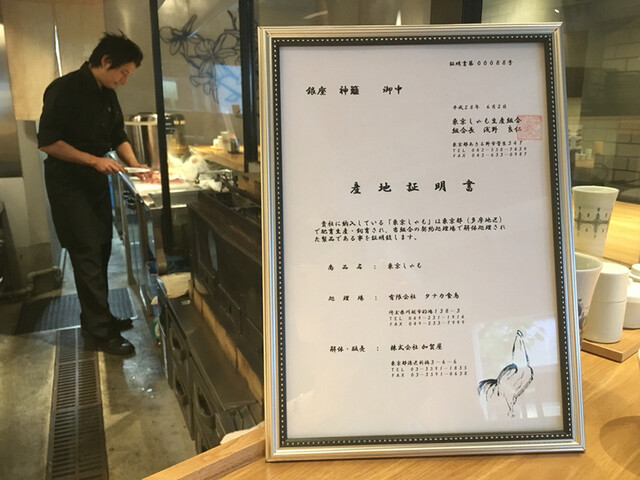 証明書第00088号
銀座 神籬 御中
平成28年 6月2日
東京しゃも生産組合
組合長 浅野 良仁
東京都あきる野市菅生547
産地証明書
貴社に納入している「東京しゃも」は東京都(多摩地区)
で肥育生産・飼育され、当組合の契約処理場で解体処理され
た製品である事を証明致します。
商品名 : 東京しゃも
処理場 : 有限会社 タナカ食鳥
TEL 049-231-1914
FAX 049-233-7999
解体・販売 : 株式会社 加賀屋
TEL 03-3391-1835
FAX 03-3391-0638